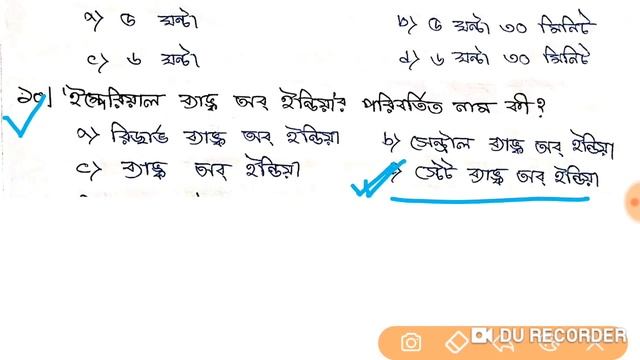 a) ৫ ঘন্টা b) ৫ ঘন্টা ৩০ মিনিট
c) ৬ ঘন্টা d) ৬ ঘন্টা ৩০ মিনিট
১০। 'ইম্পেরিয়াল ব্যাঙ্ক অব্ ইন্ডিয়া'র পরিবর্তিত নাম কী?
a) রিজার্ভ ব্যাঙ্ক অব্ ইন্ডিয়া b) সেন্ট্রাল ব্যাঙ্ক অব্ ইন্ডিয়া
c) ব্যাঙ্ক অব্ ইন্ডিয়া স্টেট ব্যাঙ্ক অব্ ইন্ডিয়া
DU RECORDER